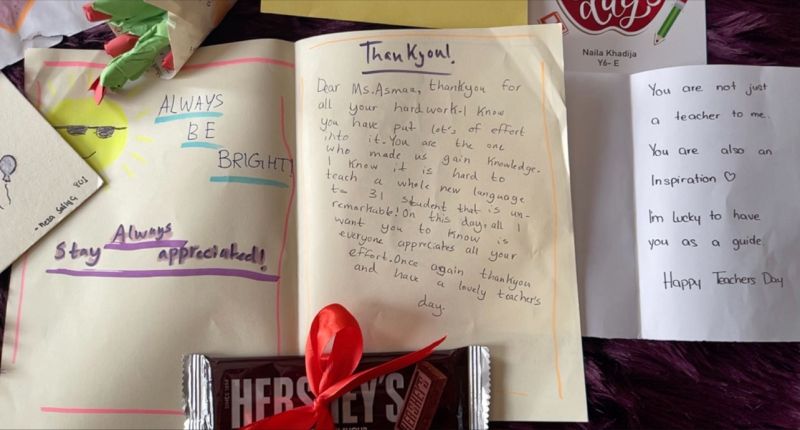 ALWAYS
BE
BRIGHT!
Stay Always appreciated!
Thankyou!
Dear Ms.Asmaa, thankyou for
all your hardwork.I know
you have put lot's of effort
into it.You are the one
who made us gain knowledge.
I know it is hard to
teach a whole new language
to 31 student that is un-
remarkable!On this day, all I
want you to know is
everyone appreciates all your
effort.Once again thankyou
and have a lovely teacher's
day.
HERSHEY'S
HERSHEY'S
days
Naila Khadija
Y6- E
You are not just
a teacher to me.
You are also an
Inspiration ♡
I'm lucky to have
you as a guide
Happy Teachers Day